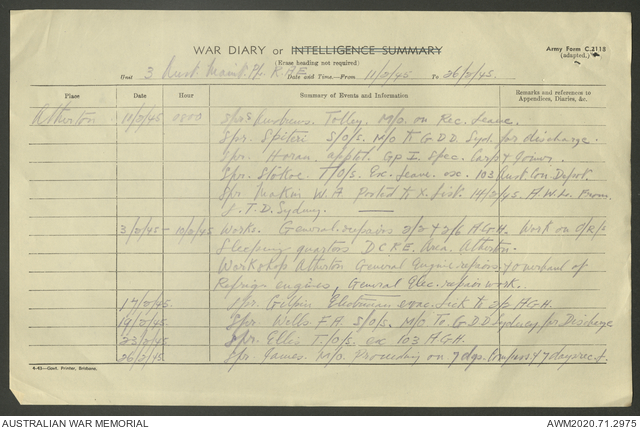 WAR DIARY or INTELLIGENCE SUMMARY
Army Form C.2118
(Erase heading not required)
(adapted.)
Unit 3 Aust. Maint. R.A.E. Date and Time.—From 11/2/45 To 26/2/45.
Place Date Hour Summary of Events and Information Remarks and references to Appendices, Diaries, &c.
Atherton 11/2/45 0800 Sprs Tolley. M/O. on Rec. Leave.
Spr. Spiteri S/O/S. M/O To G.D.D. Syd. for discharge.
Spr. Horan. apptd. Gp I. Spec. Carp & Joiner.
Spr. Stokoe. T/O/S. Ex. Leave. ex. 103 Aust Con Depot.
Spr Makin W.A. Posted to X. list. 14/2/45. A.W.L. From
L.T.D. Sydney.
3/2/45 - 10/2/45 Works. General repairs 2/2 & 2/6 A.G.H. Work on O/R/s
Sleeping quarters D.C.R.E. Area. Atherton.
Workshop Atherton General Engine repairs & overhaul of
Refrign engines, General Elec. repair work.
17/2/45. Spr. Gilpin Electrician evac. sick to 2/2 A.G.H.
19/2/45. Spr. Wells F.A. S/O/S. M/O To G.D.D. Sydney for Discharge
23/2/45. Spr. Ellis T/O/S. ex 103 A.G.H.
26/2/45. Spr. James. M/O. Proceeding on 7 dys. Compass & 7 days rec. l.
4-43—Govt. Printer, Brisbane.
AUSTRALIAN WAR MEMORIAL
AWM2020.71.2975